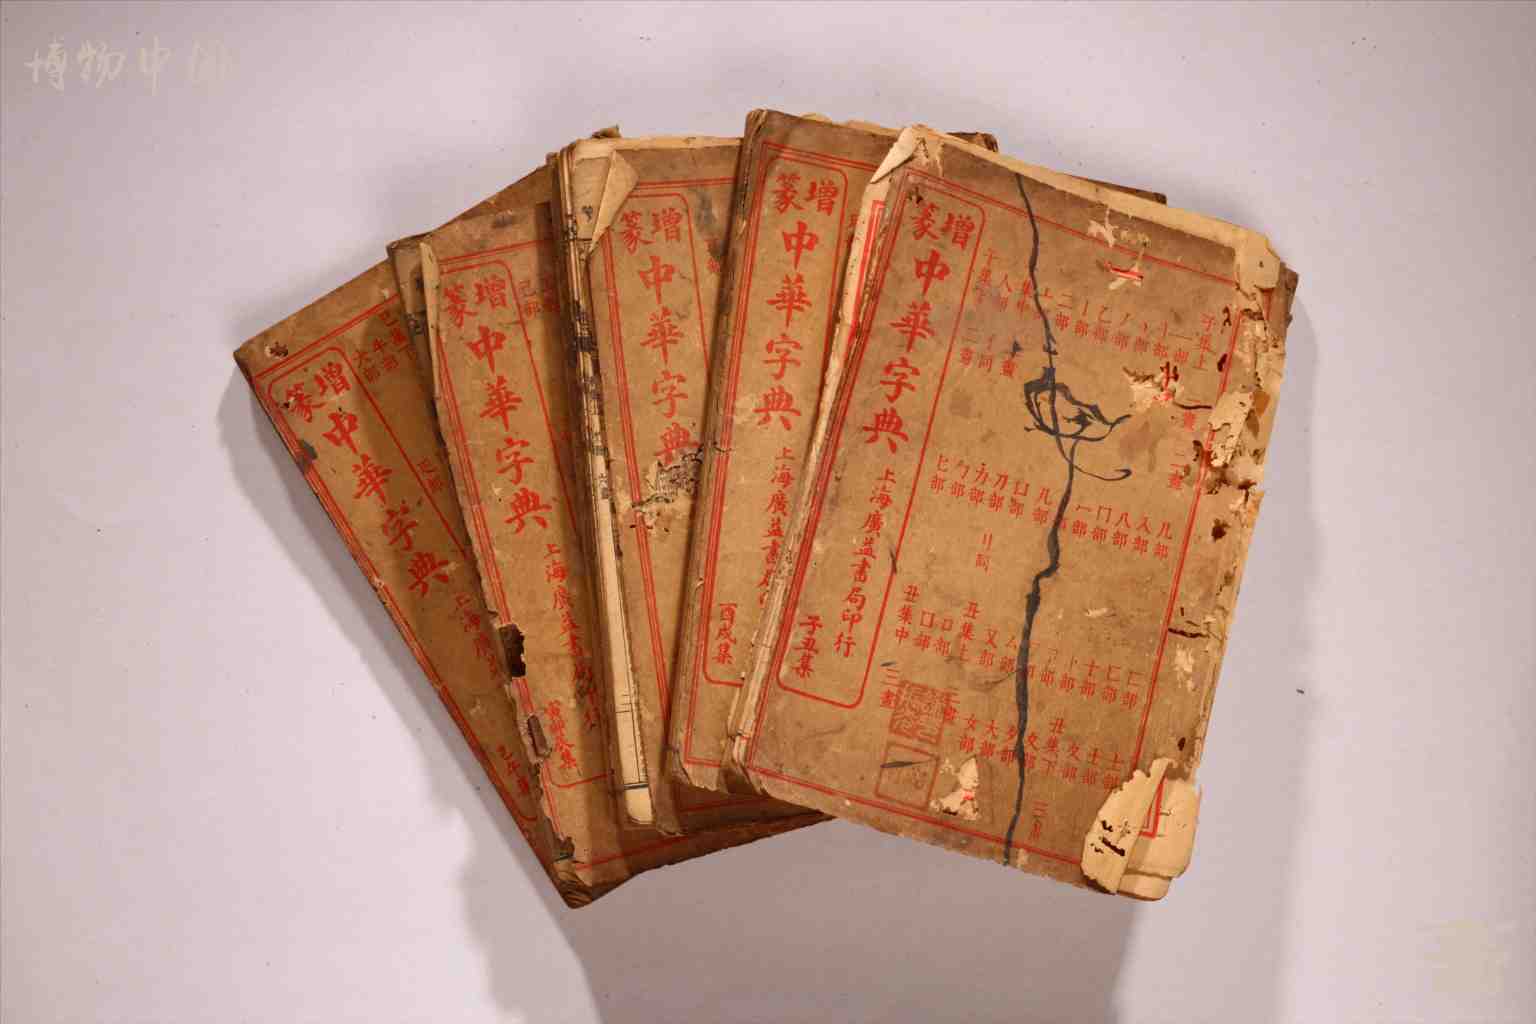 博物中国
增篆
中華字典
上海廣益書局印行
子丑集
子集上
一部
丨部
丶部
丿部
乙部
亅部
二部
亠部
人部
二畫
儿部
入部
八部
冂部
冖部
几部
凵部
刀部
力部
勹部
匕部
刂同
匚部
匸部
十部
卜部
厶部
又部
丑集上
口部
囗部
丑集中
三畫
土部
士部
夂部
丑集下
夊部
大部
女部
三畫
增篆
中華字典
上海廣益書局
酉戌集
增篆
中華字典
增篆
中華字典
上海廣益書局印行
寅卯辰集
增篆
中華字典
上海廣益